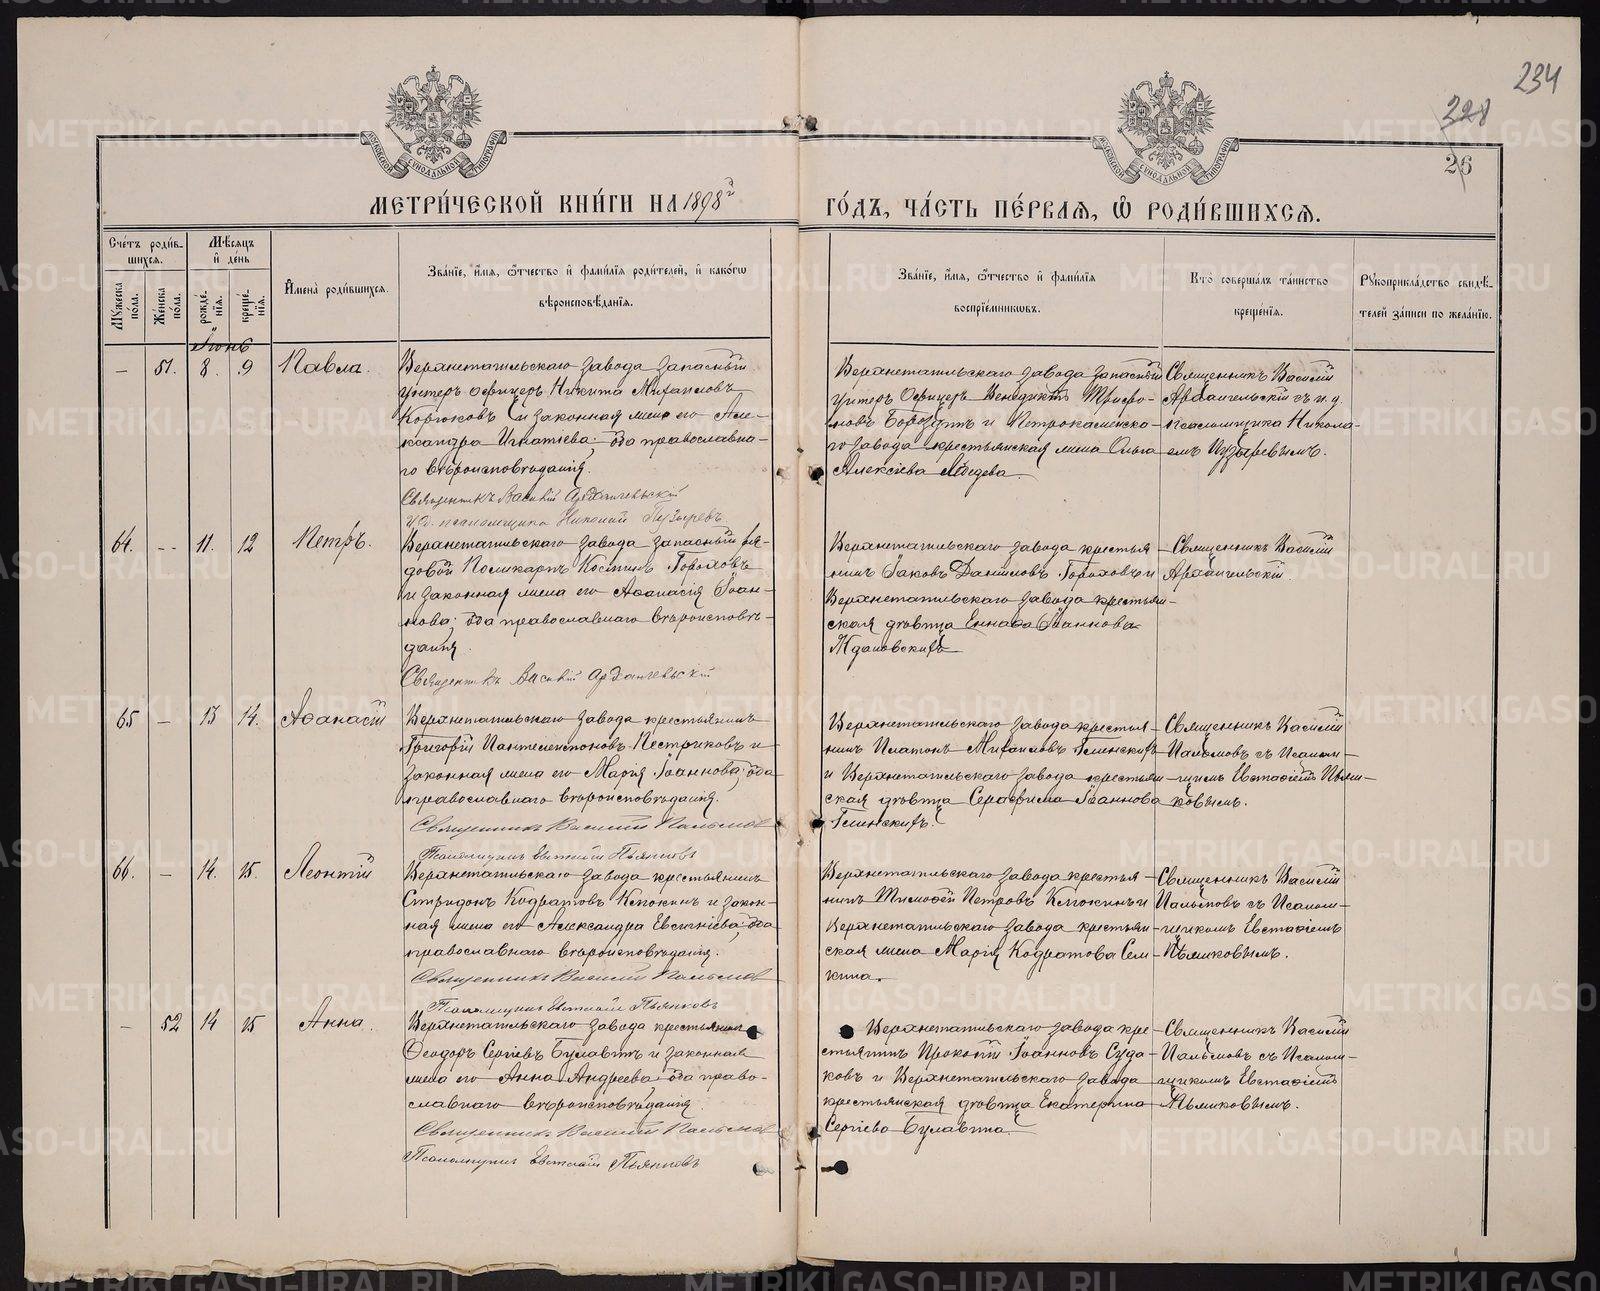 234
328
26
МЕТРИ́ЧЕСКОЙ КНИ́ГИ НА 1898 г҃
ГО́ДЪ, ЧА́СТЬ ПЕ́РВАЯ, Ѽ РОДИ́ВШИХСЯ.
Сче́тъ роди́в-
шихся.
Мѣ́сяцъ
и҆ де́нь
Му́жеска по́ла.
Же́нска по́ла.
рожде́-
нїя.
креще́-
нїя.
И҆мена̀ роди́вшихся.
Зва́нїе, и҆́мя, ѻ҆́тчество и҆ фами́лїя роди́телей, и҆ како́гѡ
вѣроисповѣ́данїя.
Зва́нїе, и҆́мя, ѻ҆́тчество и҆ фами́лїя
воспрїе́мникѡвъ.
Кто̀ соверша́лъ та́инство
креще́нїя.
Рꙋкоприкла́дство свидѣ́-
телей за́писи по жела́нїю.
Іюнь
— 51. 8. 9 Павла.
Верхнетагильскаго завода запасный
унтеръ офицеръ Никита Михаиловъ
Корюковъ и законная жена его Але-
ксандра Игнатіева; оба православна-
го вѣроисповѣданія.
Священникъ Василій Архангельскій
и д. псаломщика Николай Пузыревъ
Верхнетагильскаго завода запасный
унтеръ Офицеръ Венедиктъ Трифо-
новъ и Петрокаменска-
го завода крестьянская жена Ольга
Алексіева Лебедева.
Священникъ Василій
Архангельскій съ и. д.
псаломщика Никола-
емъ Пузыревымъ.
64. -- 11. 12 Петръ.
Верхнетагильскаго завода запасный ря-
довой Поликарпъ Костинъ Гороховъ
и законная жена его Аѳанасія Іоан-
нова; оба православнаго вѣроисповѣ-
данія.
Священникъ Василій Архангельскій
Верхнетагильскаго завода крестья-
нинъ Іаковъ Даніиловъ Гороховъ и
Верхнетагильскаго завода крестьян-
ская дѣвица Іоаннова
Ждановскихъ
Священникъ Василій
Архангельскій.
65 — 13 14. Аѳанасій
Верхнетагильскаго завода крестьянинъ
Григорій Пантелеимоновъ Пестриковъ и
законная жена его Марія Іоаннова; оба
православнаго вѣроисповѣданія.
Священникъ Василій Пальмов
Псаломщикъ Евстафій Пьянковъ
Верхнетагильскаго завода крестья-
нинъ Платонъ Михаиловъ Глинскихъ
и Верхнетагильскаго завода крестьян-
ская дѣвица Серафима Іоаннова
Глинскихъ.
Священникъ Василій
Пальмовъ съ Псалом-
щикомъ Евстафіемъ Пьян-
ковымъ.
66. — 14. 15. Леонтій
Верхнетагильскаго завода крестьянинъ
Спиридонъ Кодратовъ Клюкинъ и закон-
ная жена его Александра Евгеніева; оба
православнаго вѣроисповѣданія.
Священникъ Василій Пальмов
Псаломщикъ Евстафій Пьянковъ
Верхнетагильскаго завода крестья-
нинъ Тимоѳей Петровъ Клюкинъ и
Верхнетагильскаго завода крестьян-
ская жена Марія Кодратова Сем-
кина.
Священникъ Василій
Пальмовъ съ Псалом-
щикомъ Евстафіемъ
Пьянковымъ.
— 52 14 15 Анна.
Верхнетагильскаго завода крестьянинъ
Ѳеодоръ Сергіевъ Булавинъ и законная
жена его Анна Андреева; оба право-
славнаго вѣроисповѣданія.
Священникъ Василій Пальмов
Псаломщикъ Евстафій Пьянковъ
Верхнетагильскаго завода кре-
стьянинъ Прокопій Іоанновъ Суда-
ковъ и Верхнетагильскаго завода
крестьянская дѣвица Екатерина
Сергіева Булавина.
Священникъ Василій
Пальмовъ съ Псалом-
щикомъ Евстафіемъ
Пьянковымъ.